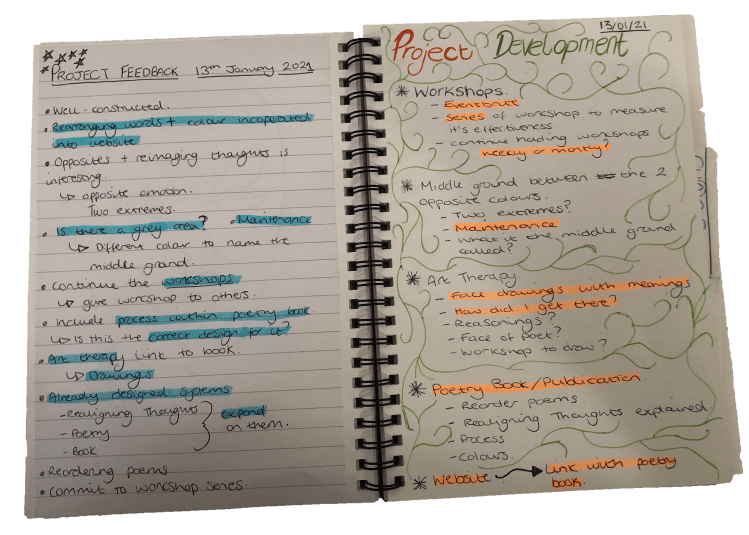 PROJECT FEEDBACK 13th January 2021
• Well-constructed.
• Rearranging words + colour incoperated
into website
• Opposites + reimaging thoughts is
interesting.
↳ opposite emotion.
Two extremes.
• Is there a grey area? • Maintenance
↳ Different colour to name the
middle ground.
• Continue the workshops
↳ give workshop to others.
• Include process within poetry book.
↳ Is this the correct design for it?
• Art therapy link to book.
↳ Drawings
• Already designed systems
- Realigning Thoughts
- Poetry
- Book
expand
on them.
• Reordering poems.
• Commit to workshop series.
13/01/21
Project Development
* Workshops.
- Eventbrite
- Series of workshop to measure
it's effectiveness.
- continue hading workshops
weekly or monthly?
* Middle ground between the 2
opposite colours.
- Two extremes?
- Maintenance
- What is the middle ground
called?
* Art Therapy.
- Face drawings with meanings
- How did I get there?
- Reasonings?
- Face of Poet?
- Workshop to draw?
* Poetry Book/Publication.
- Reorder poems.
- Realigning Thoughts explained
- Process
- Colours.
* Website → Link with poetry
book.